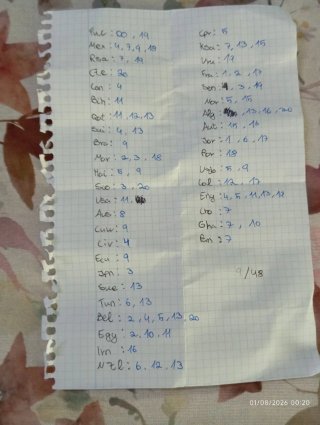 FWC: 20, 19
Mex: 4, 7, 9, 18
Rsa: 7, 19
Cze: 20
Can: 4
Bih: 11
Qat: 11, 12, 13
Sui: 4, 13
Bra: 9
Mar: 2, 3, 18
Hai: 5, 9
Sco: 3, 20
Usa: 11,
Aus: 8
Cuw: 9
Civ: 4
Ecu: 9
Jpn: 3
Swe: 13
Tun: 6, 13
Bel: 2, 4, 5, 13, 20
Egy: 2, 10, 11
Irn: 16
NZl: 6, 12, 13
Cpv: 5
Ksa: 7, 13, 15
Uru: 17
Fra: 1, 2, 17
Sen: 3, 19
Nor: 5, 15
Alg: 13, 16, 20
Aut: 15, 16
Jor: 1, 6, 17
Por: 18
Uzb: 5, 9
Col: 12, 17
Eng: 4, 5, 11, 13, 17
Cro: 7
Gha: 7, 10
Pan: 7
9/48
01/08/2026 00:20